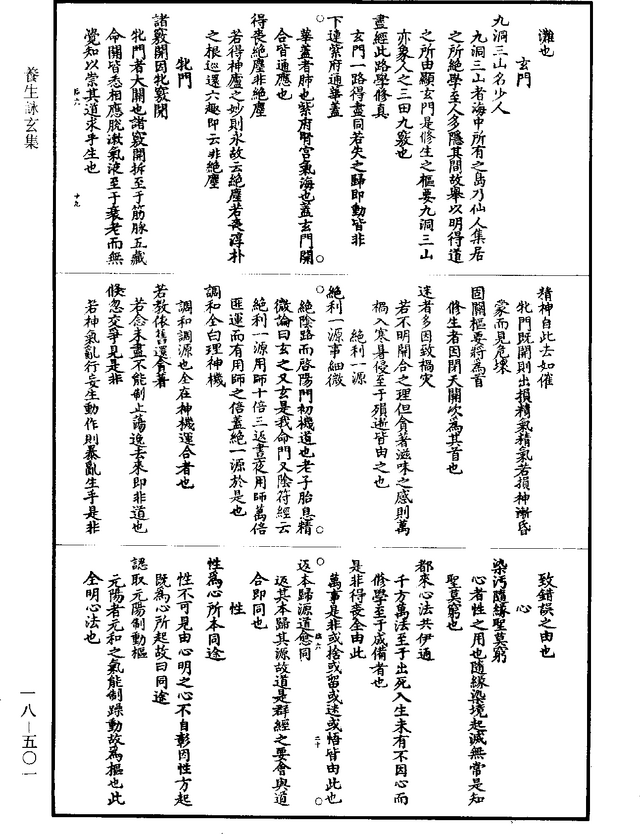 灘也
玄門
九洞三山名少人
九洞三山者海中所有之島乃仙人集居
之所絕學至人多隱其間故舉以明得道
之所由顯玄門是修生之樞要九洞三山
亦象人之三田九竅也
盡經此路學修真
玄門一路得盡同若失之歸即動皆非
下連紫府通華蓋
華蓋者肺也紫府腎宮氣海也蓋玄門開
合皆通應也
得喪絕塵非絕塵
若得神廬之妙則永故云絕塵若喪淳朴
之根巡還六趣即云非絕塵
牝門
諸竅開因牝竅開
牝門者大開也諸竅開拆至于筋脉五藏
命關皆悉相應脫漱氣液至于衰老而無
覺知以崇其道求乎生也
臨六
十九
精神自此去如催
牝門既開則出損精氣精氣若損神漸昏
蒙而見危壞
固關樞要將為首
修生者因閉天關吹為其首也
迷者多因致禍灾
若不明開合之理但貪著滋味之感則萬
禍入寒暑侵至于殞逝皆由之也
絕利一源
絕利一源事細微
絕陰路而啓陽門初機道也老子胎息精
微論曰玄之又玄是我命門又陰符經云
絕利一源用師十倍三返晝夜用師萬倍
匪運而有用師之倍蓋絕一源於是也
調和全曰理神機
調和調源也全在神機運合者也
若教依舊還有著
若念未盡不能制止蕩逸去來即非道也
倏忽交爭見是非
若神氣亂行妄生動作則暴亂生乎是非
致錯誤之由也
心
染汚隨緣聖莫窮
心者性之用也隨緣染境起滅無常是知
聖莫窮也
都來心法共伊通
千方萬法至于出死入生未有不因心而
修學至于成備者也
是非得喪全由此
萬事是非或捨或留或迷或悟皆由此也
返本歸源道愈同
臨六
二十
返其本歸其源故道是群經之要會與道
合即同也
性
性為心所本同途
性不可見由心明之心不自彰因性方起
既為心所起故曰同途
認取元陽制動樞
元陽者元和之氣能制躁動故為樞也此
全明心法也
養生詠玄集
一八—五〇一